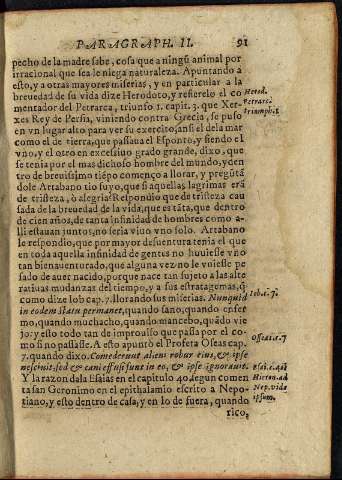 PARAGRAPH. II. 91
pecho de la madre sabe, cosa que a ningũ animal por
irracional que sea le niega naturaleza. Apuntando a
esto, y a otras mayores miserias, y en particular a la
breuedad de su vida dize Herodoto, y refierelo el co
mentador del Petrarca, triunfo 1. capit. 3. que Xer-
xes Rey de Persia, viniendo contra Grecia, se puso
en vn lugar alto para ver su exercito, ansi el de la mar
como el de tierra, que passaua el Esponto, y siendo el
vno, y el otro en excessiuo grado grande, dixo, que
se tenia por el mas dichoso hombre del mundo, y den
tro de breuissimo tiẽpo começo a llorar, y pregũtã
dole Artabano tio suyo, que si aquellas lagrimas erã
de tristeza, ò alegria? Respondio que de tristeza cau
sada de la breuedad de la vida, que es tãta, que dentro
de cien años, de tanta infinidad de hombres como a-
lli estauan juntos, no seria viuo vno solo. Artabano
le respondio, que por mayor desuentura tenia el que
en toda aquella infinidad de gentes no huuiesse vno
tan bienauenturado, que alguna vez no le vuiesse pe
sado de auer nacido, porque nace tan sujeto a las alte
ratiuas mudanzas del tiempo, y a sus estratagemas, q̃
como dize Iob cap. 7. llorando sus miserias. Nunquid
in eodem statu permanet, quando sano, quando enfer
mo, quando muchacho, quando mancebo, quãdo vie
jo: y esto todo tan de improuiso que passa por el co-
mo si no passasse. A esto apuntò el Profeta Oseas cap.
7. quando dixo. Comederunt alieni robur eius, & ipse
nesciuit: sed & cani effusi sunt in eo, & ipse ignorauit.
Y la razon dala Esaias en el capitulo 40. segun comen
ta san Geronimo en el epithalamio escrito a Nepo-
tiano, y esto dentro de casa, y en lo de fuera, quando
rico,
Herod.
Petrarc.
triumph. 1
Iob. c. 7.
Oseas. c. 7
Esai. c. 40
Hieron. ad
Nep. vide
ipsum.